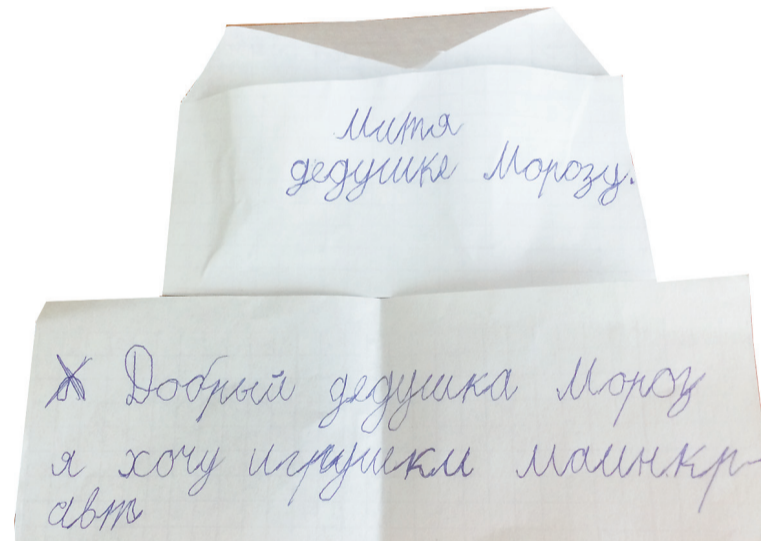 Митя
дедушке Морозу.
Добрый дедушка Мороз
я хочу игрушки маинкр-
авт